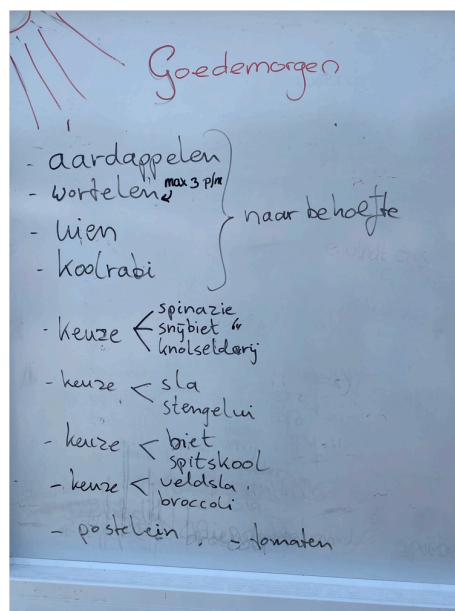 Goedemorgen
- aardappelen
- wortelen max 3 p/m
- uien
- koolrabi
naar behoefte
- keuze < spinazie
snijbiet
knolselderij
- keuze < sla
stengelui
- keuze < biet
spitskool
- keuze < veldsla
broccoli
- postelein. - tomaten